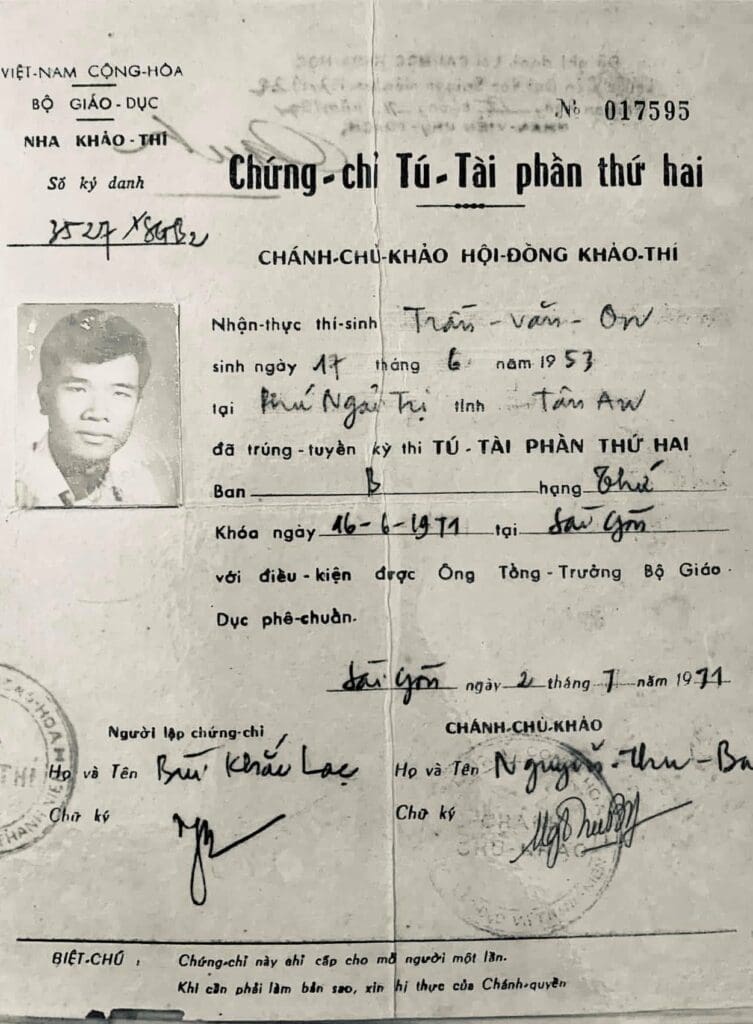 VIỆT-NAM CỘNG-HÒA
BỘ GIÁO-DỤC
NHA KHẢO-THÍ
Số ký danh
3527 XSGB2
№ 017595
Chứng-chỉ Tú-Tài phần thứ hai
CHÁNH-CHỦ-KHẢO HỘI-ĐỒNG KHẢO-THÍ
Nhận-thực thí-sinh Trần-văn-On
sinh ngày 17 tháng 6 năm 1953
tại Phú Ngãi Trị tỉnh Tân An
đã trúng-tuyển kỳ thi TÚ-TÀI PHẦN THỨ HAI
Ban B hạng Thứ
Khóa ngày 16-6-1971 tại Sài Gòn
với điều-kiện được Ông Tổng-Trưởng Bộ Giáo
Dục phê-chuẩn.
Sài Gòn ngày 2 tháng 7 năm 1971
Người lập chứng-chỉ
Họ và Tên Bùi Khắc Lạc
Chữ ký
CHÁNH-CHỦ-KHẢO
Họ và Tên Nguyễn-Thu-Ba
Chữ ký
BIỆT-CHÚ : Chứng-chỉ này chỉ cấp cho mỗ người một lần.
Khi cần phải làm bản sao, xin thị thực của Chánh-quyền